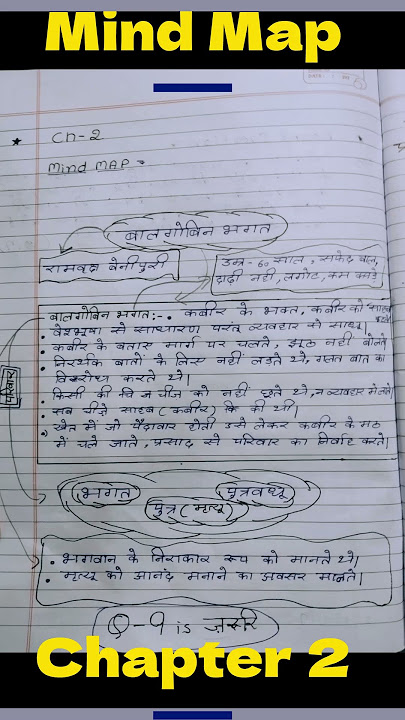 Mind Map
Ch-2
Mind MAP
बालगोबिन भगत
रामवृक्ष बेनीपुरी
उम्र - 60 साल, सफेद बाल,
दाढ़ी नही, लगोट, कम कपड़े
बालगोबिन भगत:- • कबीर के भक्त, कबीर को साहब
• वेशभूषा से साधारण परंतु व्यवहार को साधू।
• कबीर के बतास मार्ग पर चलते, झूठ नहीं बोलते
• निरर्थक बातों के लिस नहीं लडते थे, गलत बात का
विरोध करते थे।
• किसी की चीज को नहीं छूते थे, न व्यवहार मे लाते।
• सब चीजे साहब (कबीर) कि की थी।
• खेत में जो पैदावार होती उसे लेकर कबीर के मठ
में चले जाते, प्रसाद से परिवार का निर्वाह करते।
परिवार
भगत
पुत्रवधू
पुत्र (मृत्यू)
• भगवान के निराकार रूप को मानते थे।
• मृत्यू को आनंद मनाने का अवसर मानते।
Q-9 is ज़रूरी
Chapter 2